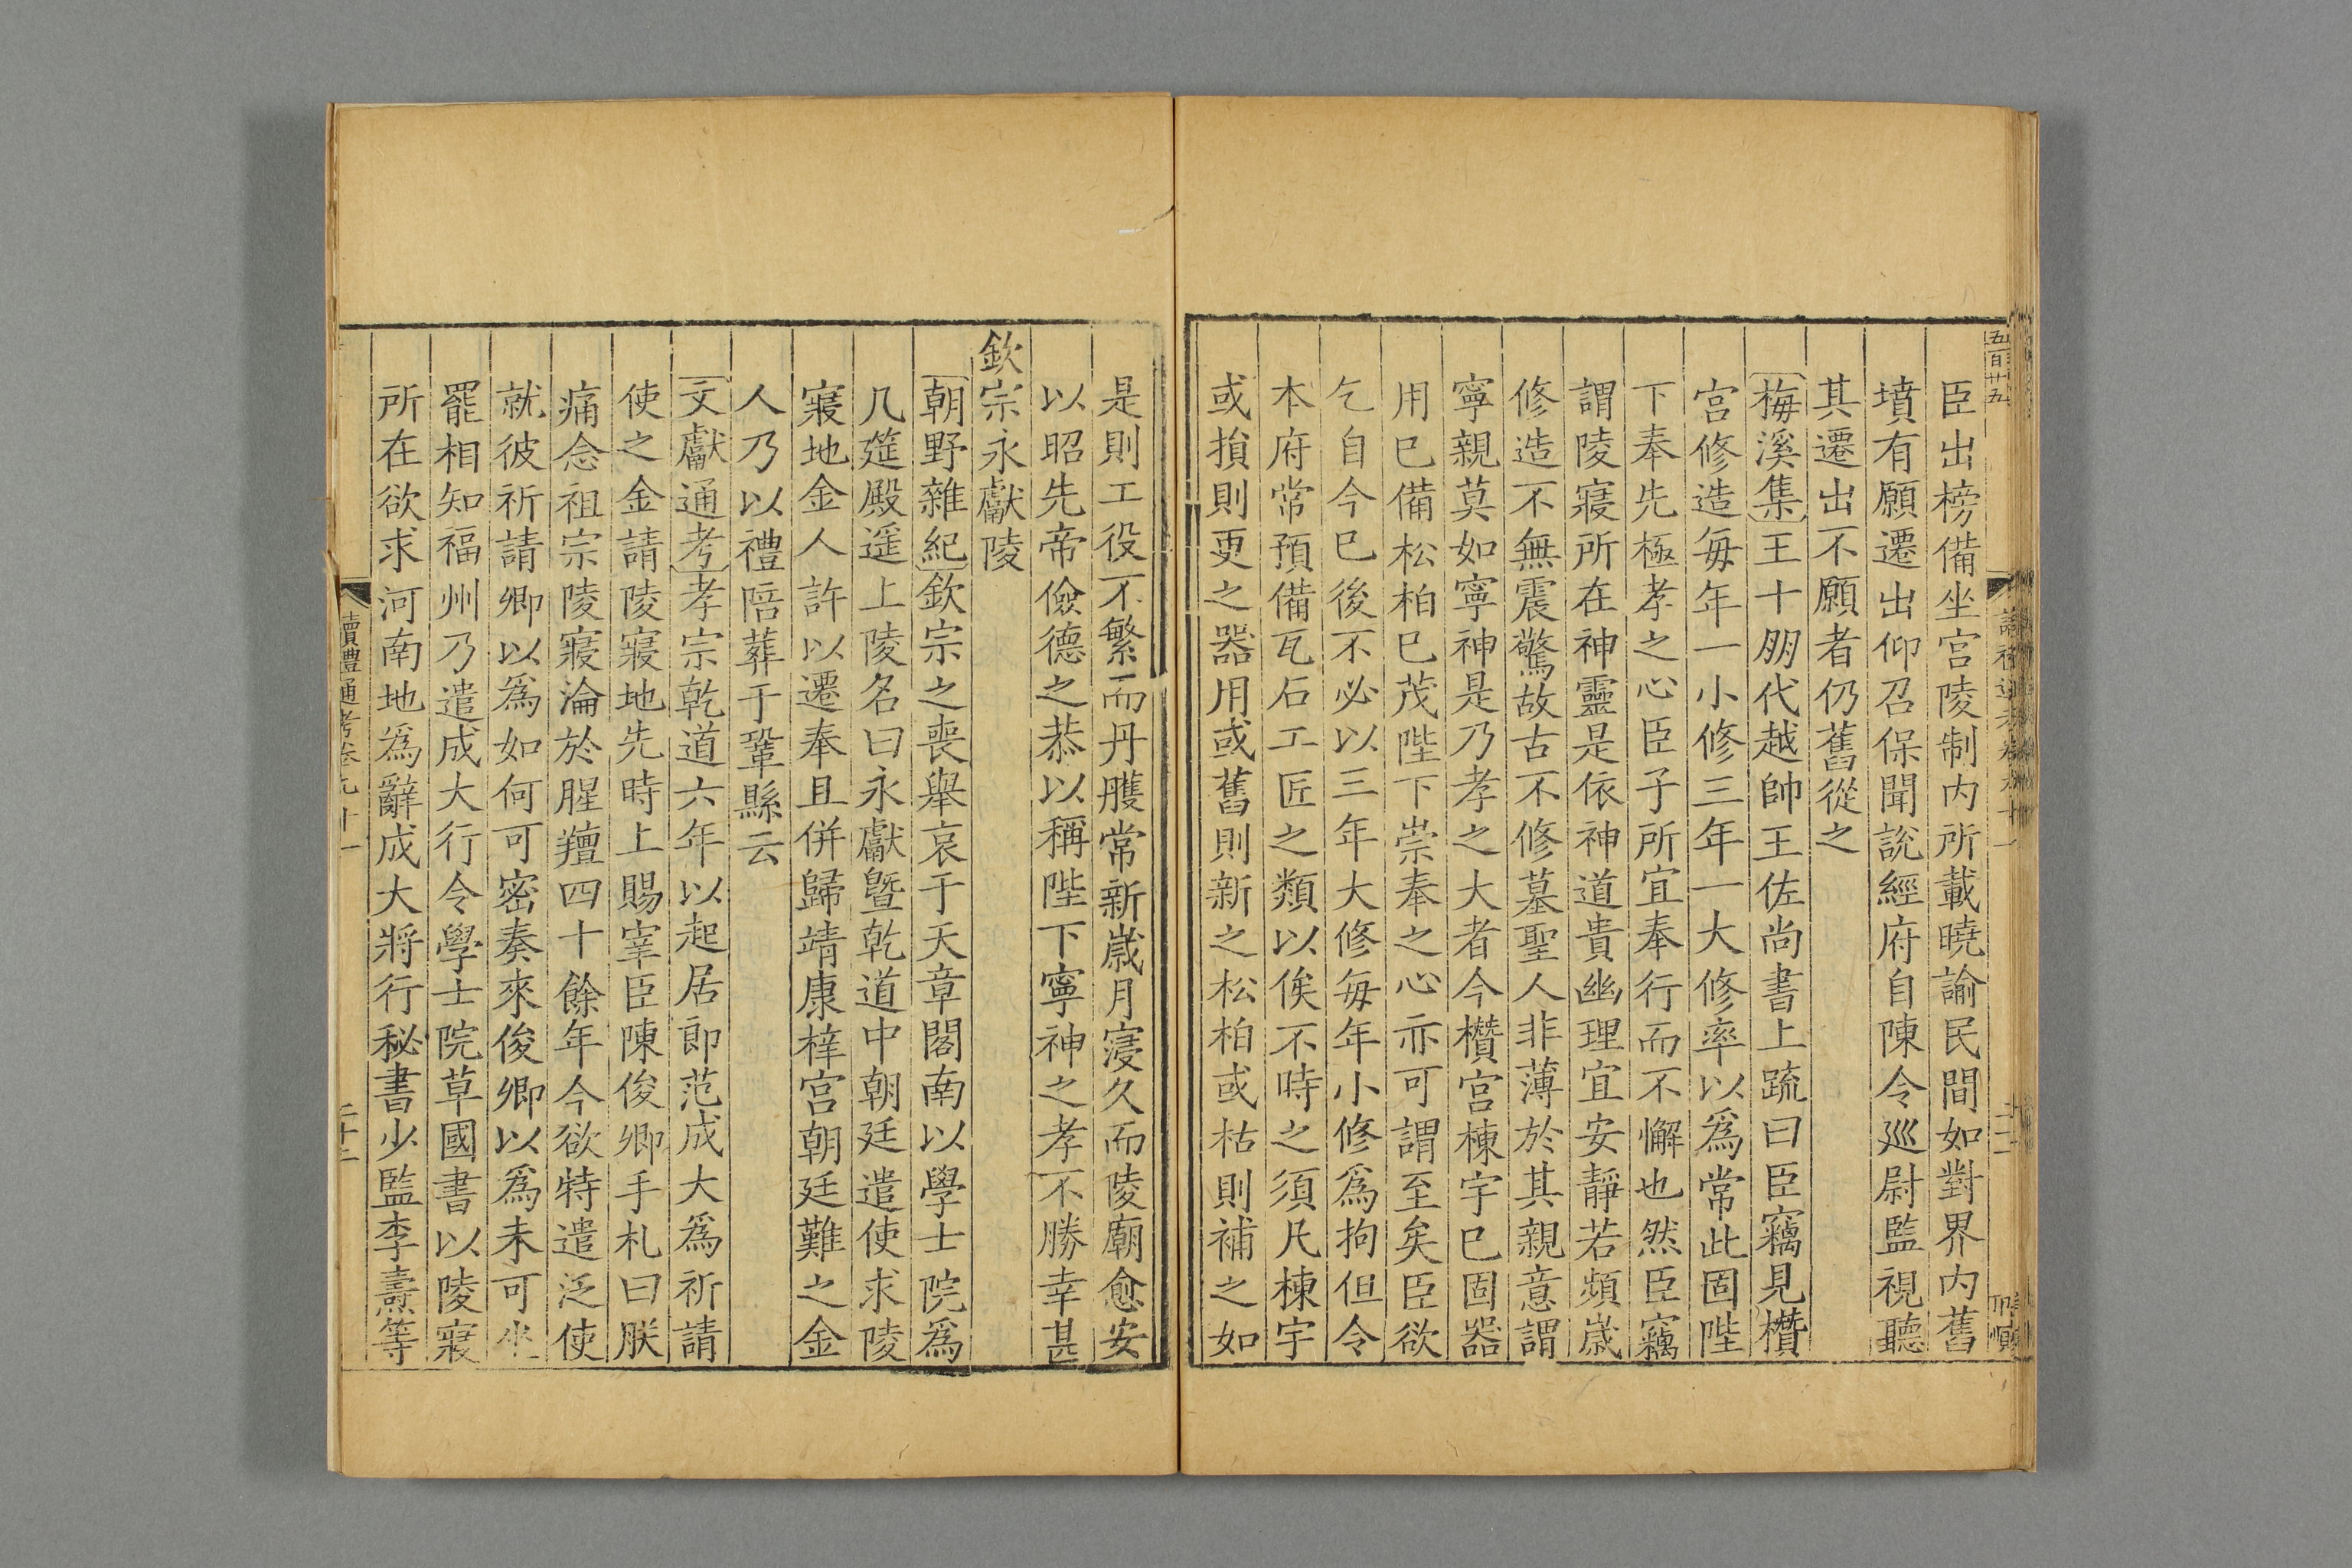 五百廿五
臣出榜備坐宫陵制内所載曉諭民間如對界内舊
墳有願遷出仰召保聞說經府自陳令巡尉監視聽
其遷出不願者仍舊從之
梅溪集王十朋代越帥王佐尚書上疏曰臣竊見欑
宫修造每年一小修三年一大修率以爲常此固陛
下奉先極孝之心臣子所宜奉行而不懈也然臣竊
謂陵寢所在神靈是依神道貴幽理宜安靜若頻歲
修造不無震驚故古不修墓聖人非薄於其親意謂
寧親莫如寧神是乃孝之大者今欑宫棟宇已固器
用已備松柏已茂陛下崇奉之心亦可謂至矣臣欲
乞自今已後不必以三年大修每年小修爲拘但令
本府常預備瓦石工匠之類以俟不時之須凡棟宇
或損則更之器用或舊則新之松柏或枯則補之如
是則工役不繁而丹雘常新歲月寖久而陵廟愈安
以昭先帝儉德之恭以稱陛下寧神之孝不勝幸甚
欽宗永獻陵
朝野雜紀欽宗之喪舉哀于天章閣南以學士院爲
几筵殿遥上陵名曰永獻曁乾道中朝廷遣使求陵
寢地金人許以遷奉且併歸靖康梓宫朝廷難之金
人乃以禮陪葬于鞏縣云
文獻通考孝宗乾道六年以起居郎范成大爲祈請
使之金請陵寢地先時上賜宰臣陳俊卿手札曰朕
痛念祖宗陵寢淪於腥羶四十餘年今欲特遣泛使
就彼祈請卿以爲如何可密奏來俊卿以爲未可坐
罷相知福州乃遣成大行令學士院草國書以陵寢
所在欲求河南地爲辭成大將行秘書少監李燾等
讀禮通考卷九十一 二十二